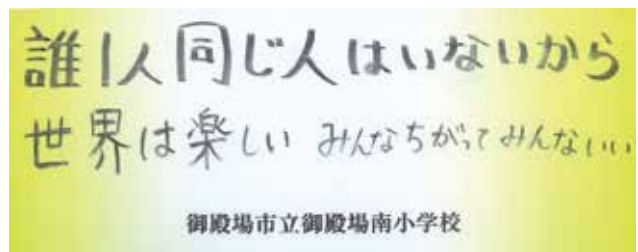 誰1人同じ人はいないから
世界は楽しい みんなちがってみんないい
御殿場市立御殿場南小学校